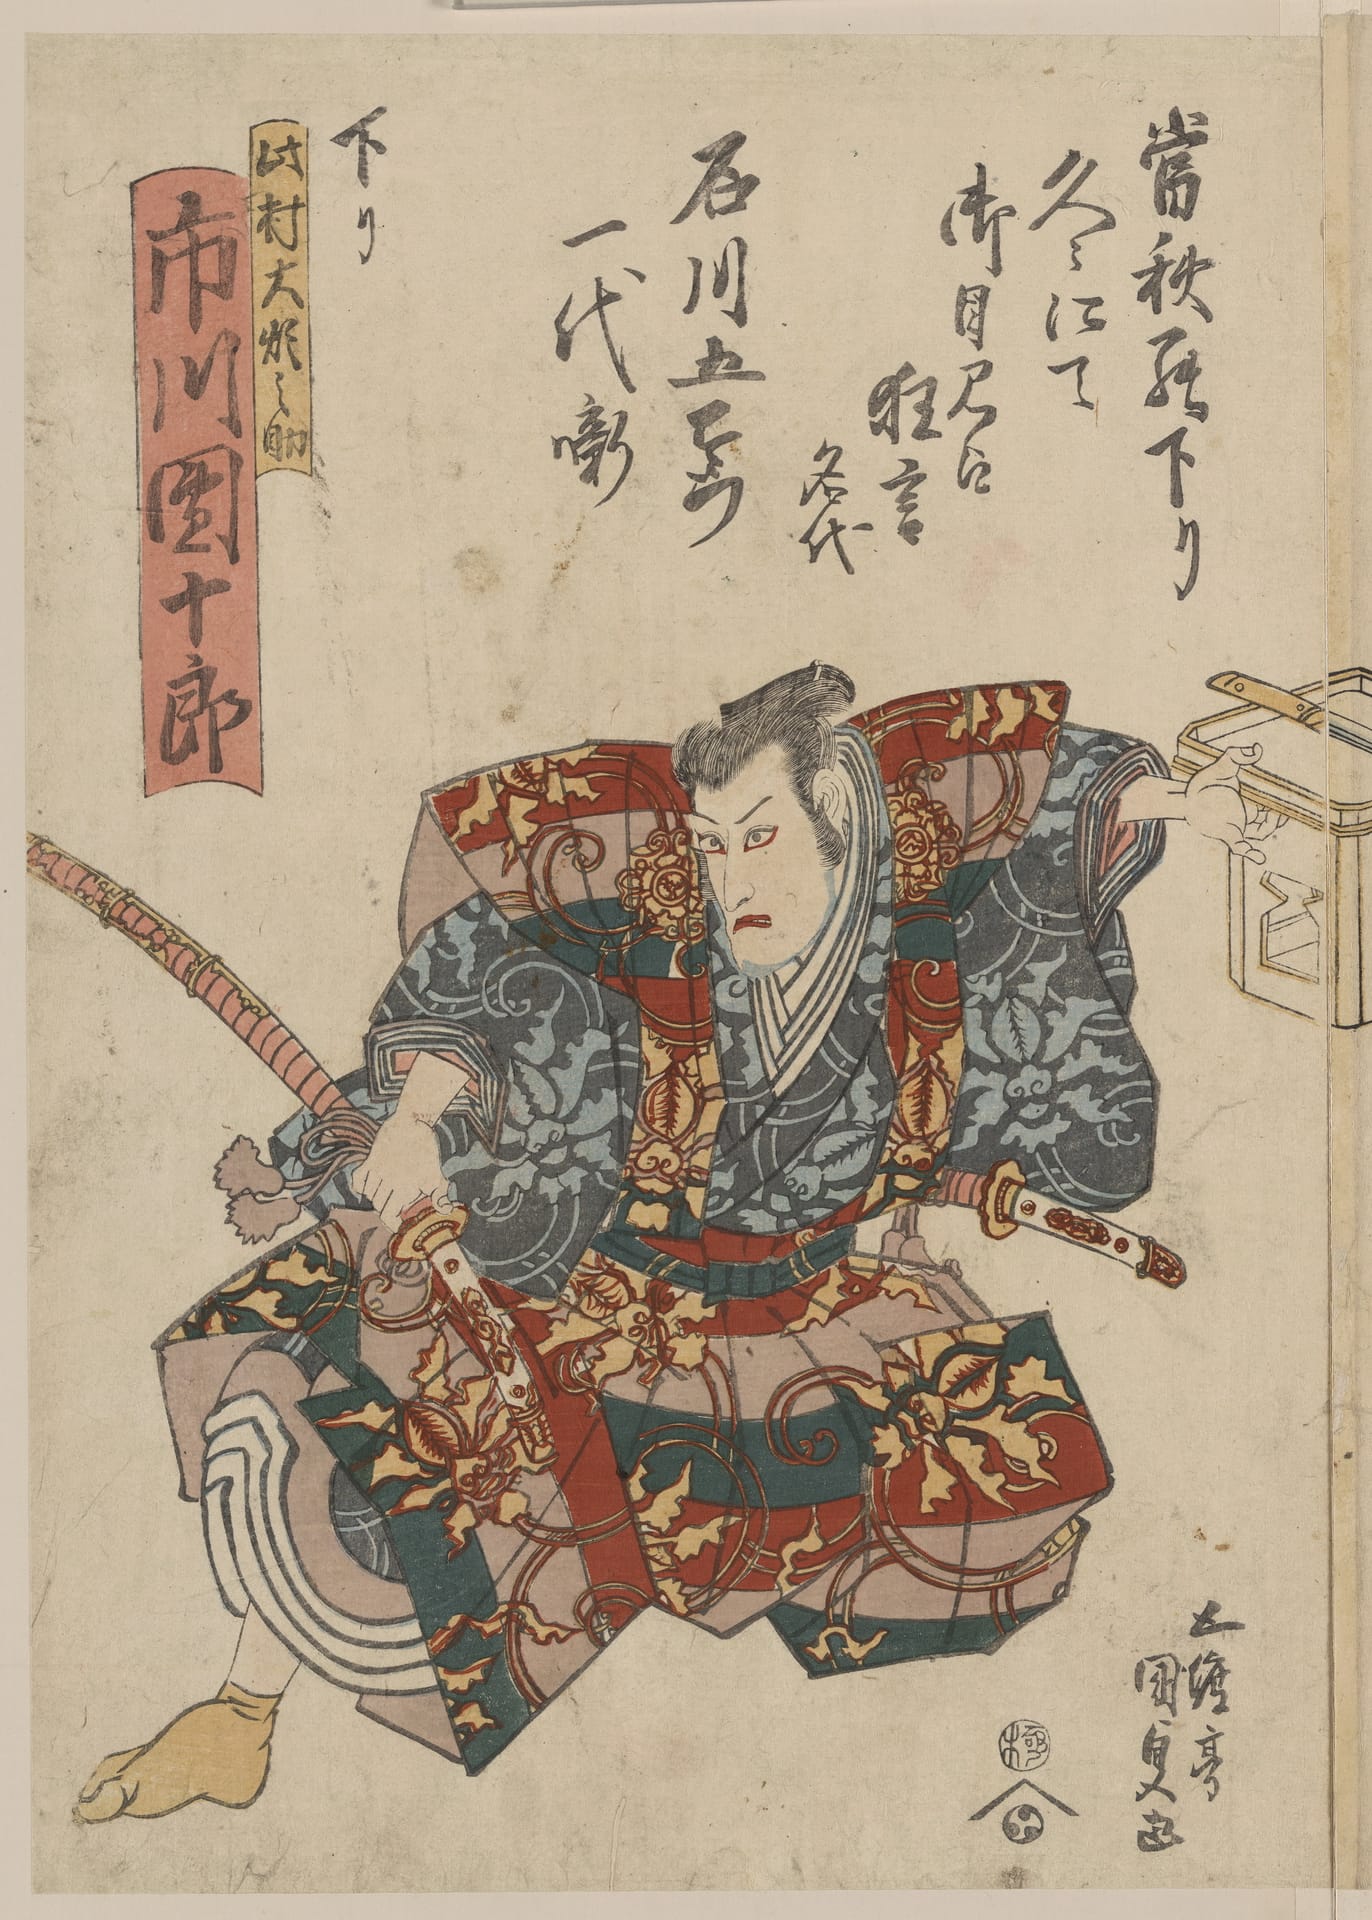 當秋罷下り
久々にて
御目見江
狂言
名代
石川五右衛門
一代噺
下り
此村大炊之助
市川團十郎
五渡亭
國貞画
極